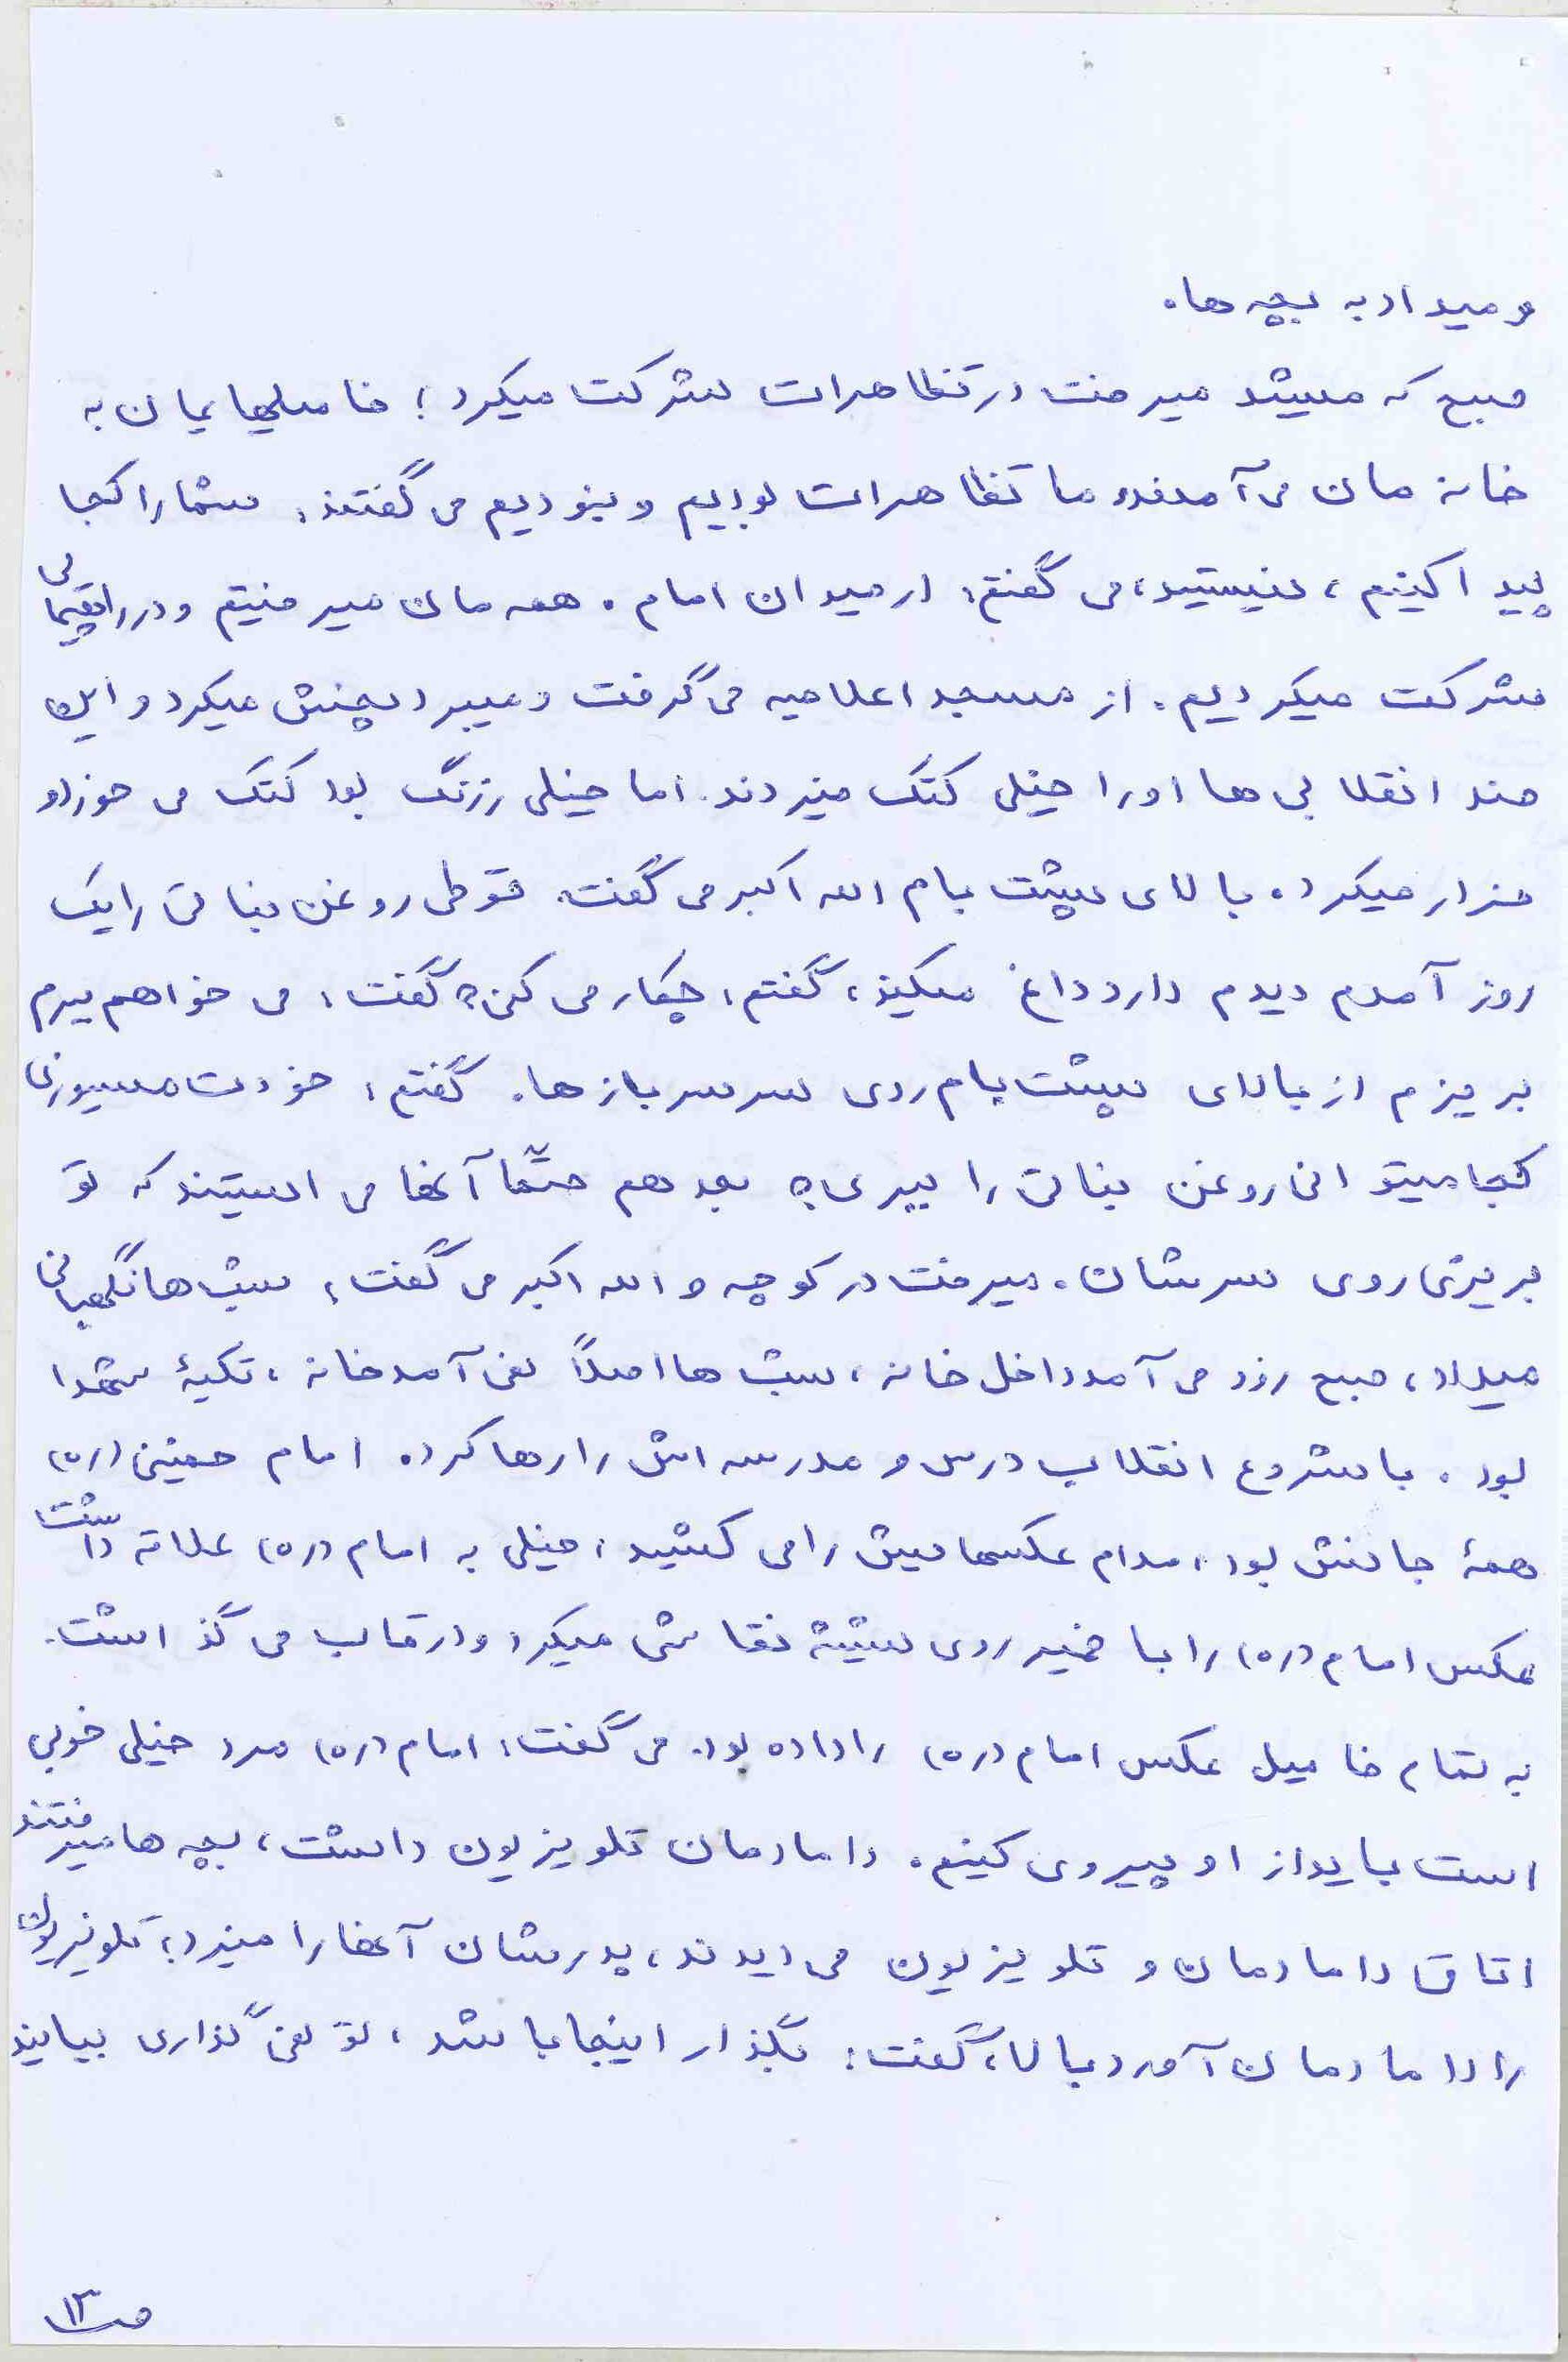 و میداد به بچه ها.
صبح که میشد میرفت در تظاهرات شرکت میکرد؛ فامیلهایمان به
خانه مان می آمدند ما تظاهرات بودیم و نبودیم می گفتند: شما را کجا
پیدا کنیم، نیستید، می گفتم: در میدان امام. همه مان میرفتیم و در راهپیمائی
شرکت میکردیم. از مسجد اعلامیه می گرفت و میبرد پخش میکرد و این
ضد انقلابی ها او را خیلی کتک میزدند. اما خیلی زرنگ بود کتک می خورد و
فرار میکرد. بالای پشت بام الله اکبر می گفت. قوطی روغن نباتی را یک
روز آمدم دیدم دارد داغ میکند، گفتم: چکار می کنی؟ گفت: می خواهم ببرم
بریزم از بالای پشت بام روی سر سربازها. گفتم: خودت میسوزی
کجا میتوانی روغن نباتی را ببری؟ بعد هم حتماً آنها می ایستند که تو
بریزی روی سرشان. میرفت در کوچه و الله اکبر می گفت، شب ها نگهبانی
میداد، صبح زود می آمد داخل خانه، شب ها اصلاً نمی آمد خانه، تکیهٔ شهدا
بود. با شروع انقلاب درس و مدرسه اش را رها کرد. امام خمینی (ره)
همهٔ جانش بود، مدام عکسهایش را می کشید، خیلی به امام (ره) علاقه داشت
عکس امام (ره) را با خمیر روی شیشه نقاشی میکرد و در قاب می گذاشت.
به تمام فامیل عکس امام (ره) را داده بود. می گفت: امام (ره) مرد خیلی خوبی
است باید از او پیروی کنیم. دامادمان تلویزیون داشت، بچه ها میرفتند
اتاق دامادمان و تلویزیون می دیدند، پدرشان آنها را میزد، تلویزیون
را دامادمان آورد بالا، گفت: بگذار اینجا باشد، تو نمی گذاری بیایند
ص ۱۳